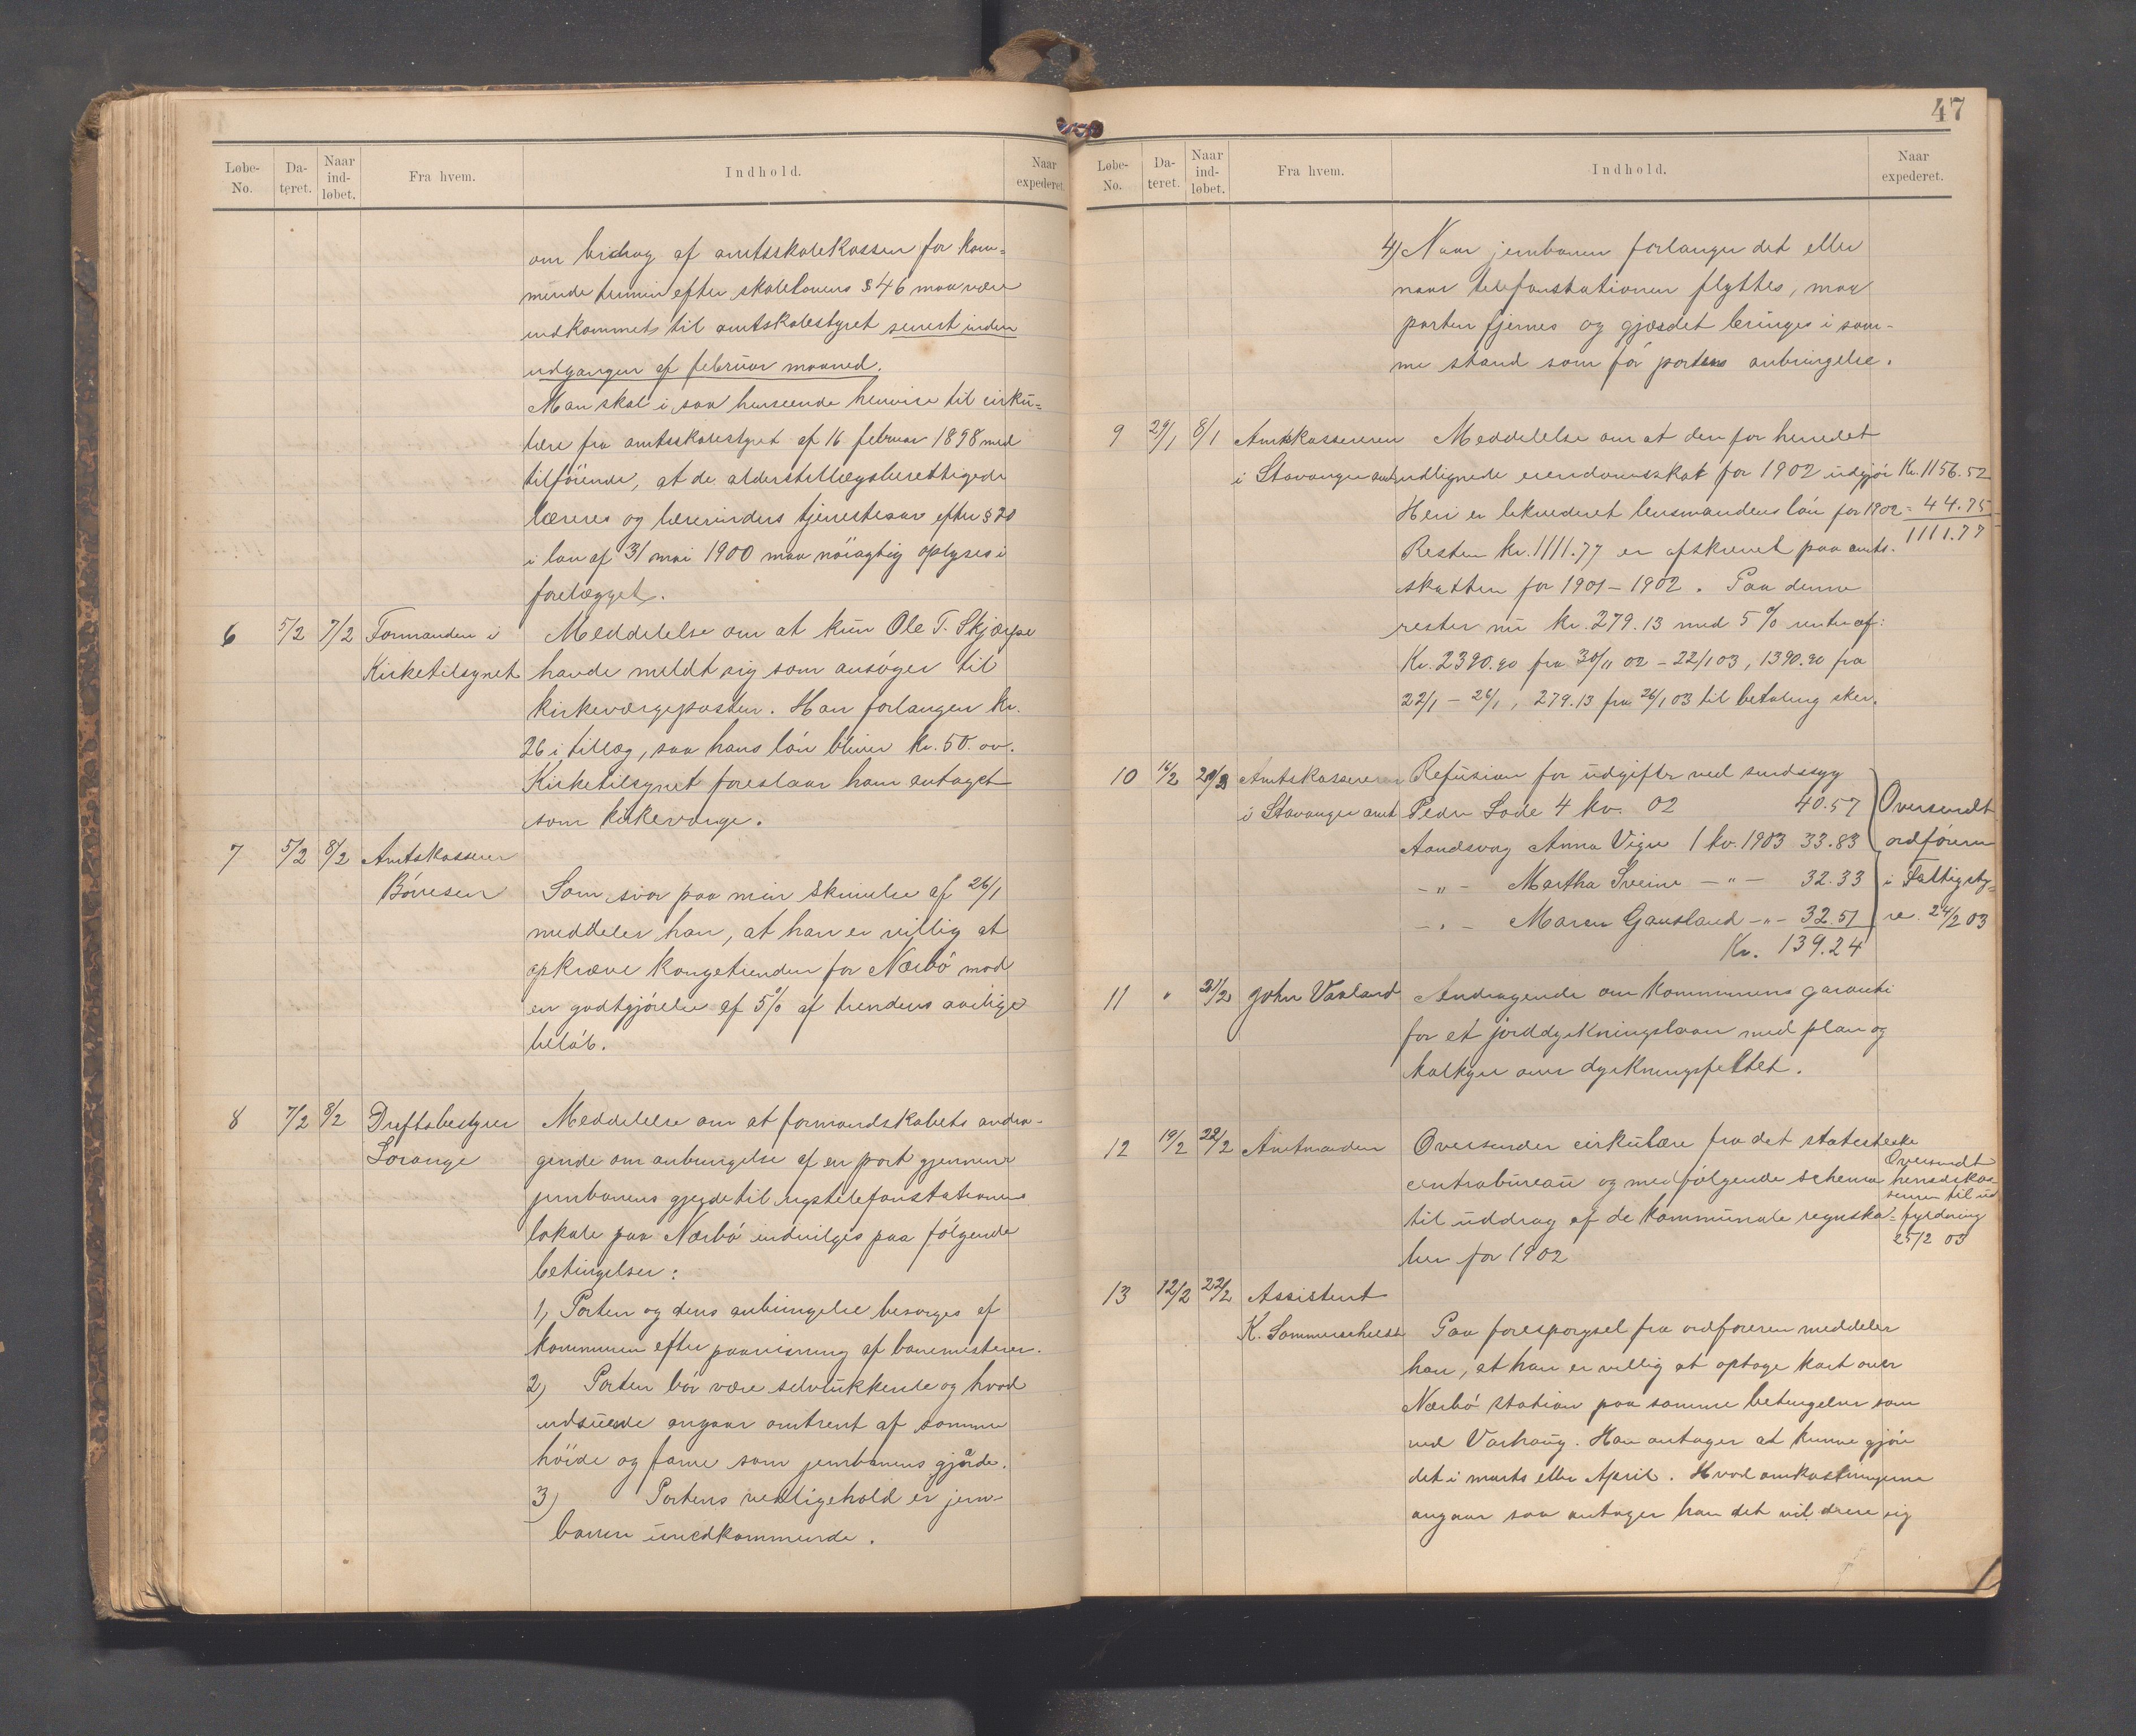 Løbe-No. Da-teret. Naar ind-løbet. Fra hvem. Indhold. Naar expederet.
om bidrag af amtsskolekassen for kom=
mende termin efter skolelovens § 46 maa være
indkommet til amtskolestyret senest inden
udgangen af februar maaned.
Man skal i saa henseende henvise til cirku=
lære fra amtsskolestyret af 16 februar 1898 med
tilföiende, at de alderstillægsberettigede
læreres og lærerinders tjenesteaar efter § 20
i lov af 31 mai 1900 maa nöiagtig oplyses i
forelægget.
6 5/2 7/2 Formanden i Meddelelse om at kun Ole T. Skjærpe
Kirketilsynet havde meldt sig som ansøger til
kirkeværgeposten. Han forlanger kr.
26 i tillæg, saa hans lön bliver kr. 50.00.
Kirketilsynet foreslaar ham antaget
som kirkeværge.
7 5/2 8/2 Amtskasserer
Börresen Som svar paa min skrivelse af 26/1
meddeler han, at han er villig at
opkræve kongetienden for Nærbö mod
en godtgjörelse af 5% af tiendens aarlige
belöb.
8 7/2 8/2 Driftsbestyrer Meddelelse om at formandskabets andra-
Lorange gende om anbringelse af en port gjennem
jernbanens gjerde til rigstelefonstationens
lokale paa Nærbö indvilges paa følgende
betingelser:
1) Porten og dens anbringelse besørges af
kommunen efter paavisning af banemesteren.
2) Porten bör være selvlukkende og hvad
udseende angaar omtrent af samme
höide og farve som jernbanens gjærde.
3) Portens vedligehold er jern-
banen uvedkommende.
47
Løbe-No. Da-teret. Naar ind-løbet. Fra hvem. Indhold. Naar expederet.
4) Naar jernbanen forlanger det eller
naar telefonstationen flyttes, maa
porten fjernes og gjærdet bringes i sam-
me stand som för portens anbringelse.
9 29/1 8/1 Amtskassereren Meddelelse om at den for herredet
i Stavanger amt udlignede eiendomsskat for 1902 udgjör Kr. 1156.52
Heri er likvideret lensmandens lön for 1902 = 44.75
Resten kr. 1111.77 er afskrevet paa amts- 1111.77
skatten for 1901-1902. Paa denne
rester nu kr. 279.13 med 5% renter af:
Kr. 2390.90 fra 30/11 02 - 22/1 03, 1390.90 fra
22/1 - 26/1, 279.13 fra 26/1 03 til betaling sker.
10 16/2 Amtskassereren Refusion for udgifter ved sindssyg
i Stavanger amt Peder Lode 4 kv. 02 40.57 Oversendt
Aandsvag Anna Vigre 1 kv. 1903 33.83 ordföreren
-"- Martha Sveine -"- 32.33 i Fattigsty=
-"- Maren Gausland -"- 32.51 re. 24/2 03
Kr. 139.24
11 " 21/2 John Varland Andragende om kommunens garanti
for et jorddyrkningslaan med plan og
kalkyer over dyrkningsfeltet.
12 19/2 22/2 Amtmanden Oversender cirkulære fra det statistiske
centrabureau og medfølgende schema
til uddrag af de kommunale regnska=
ber for 1902
Oversendt
herredskas-
sereren til ud
fyldning
25/2 03
13 12/2 22/2 Assistent
K. Sommerschield Paa forespørgsel fra ordføreren meddeler
han, at han er villig at optage kart over
Nærbö station paa samme betingelser som
ved Varhaug. Han antager at kunne gjöre
det i marts eller April. Hvad omkostningerne
angaar saa antager han det vil dreie sig